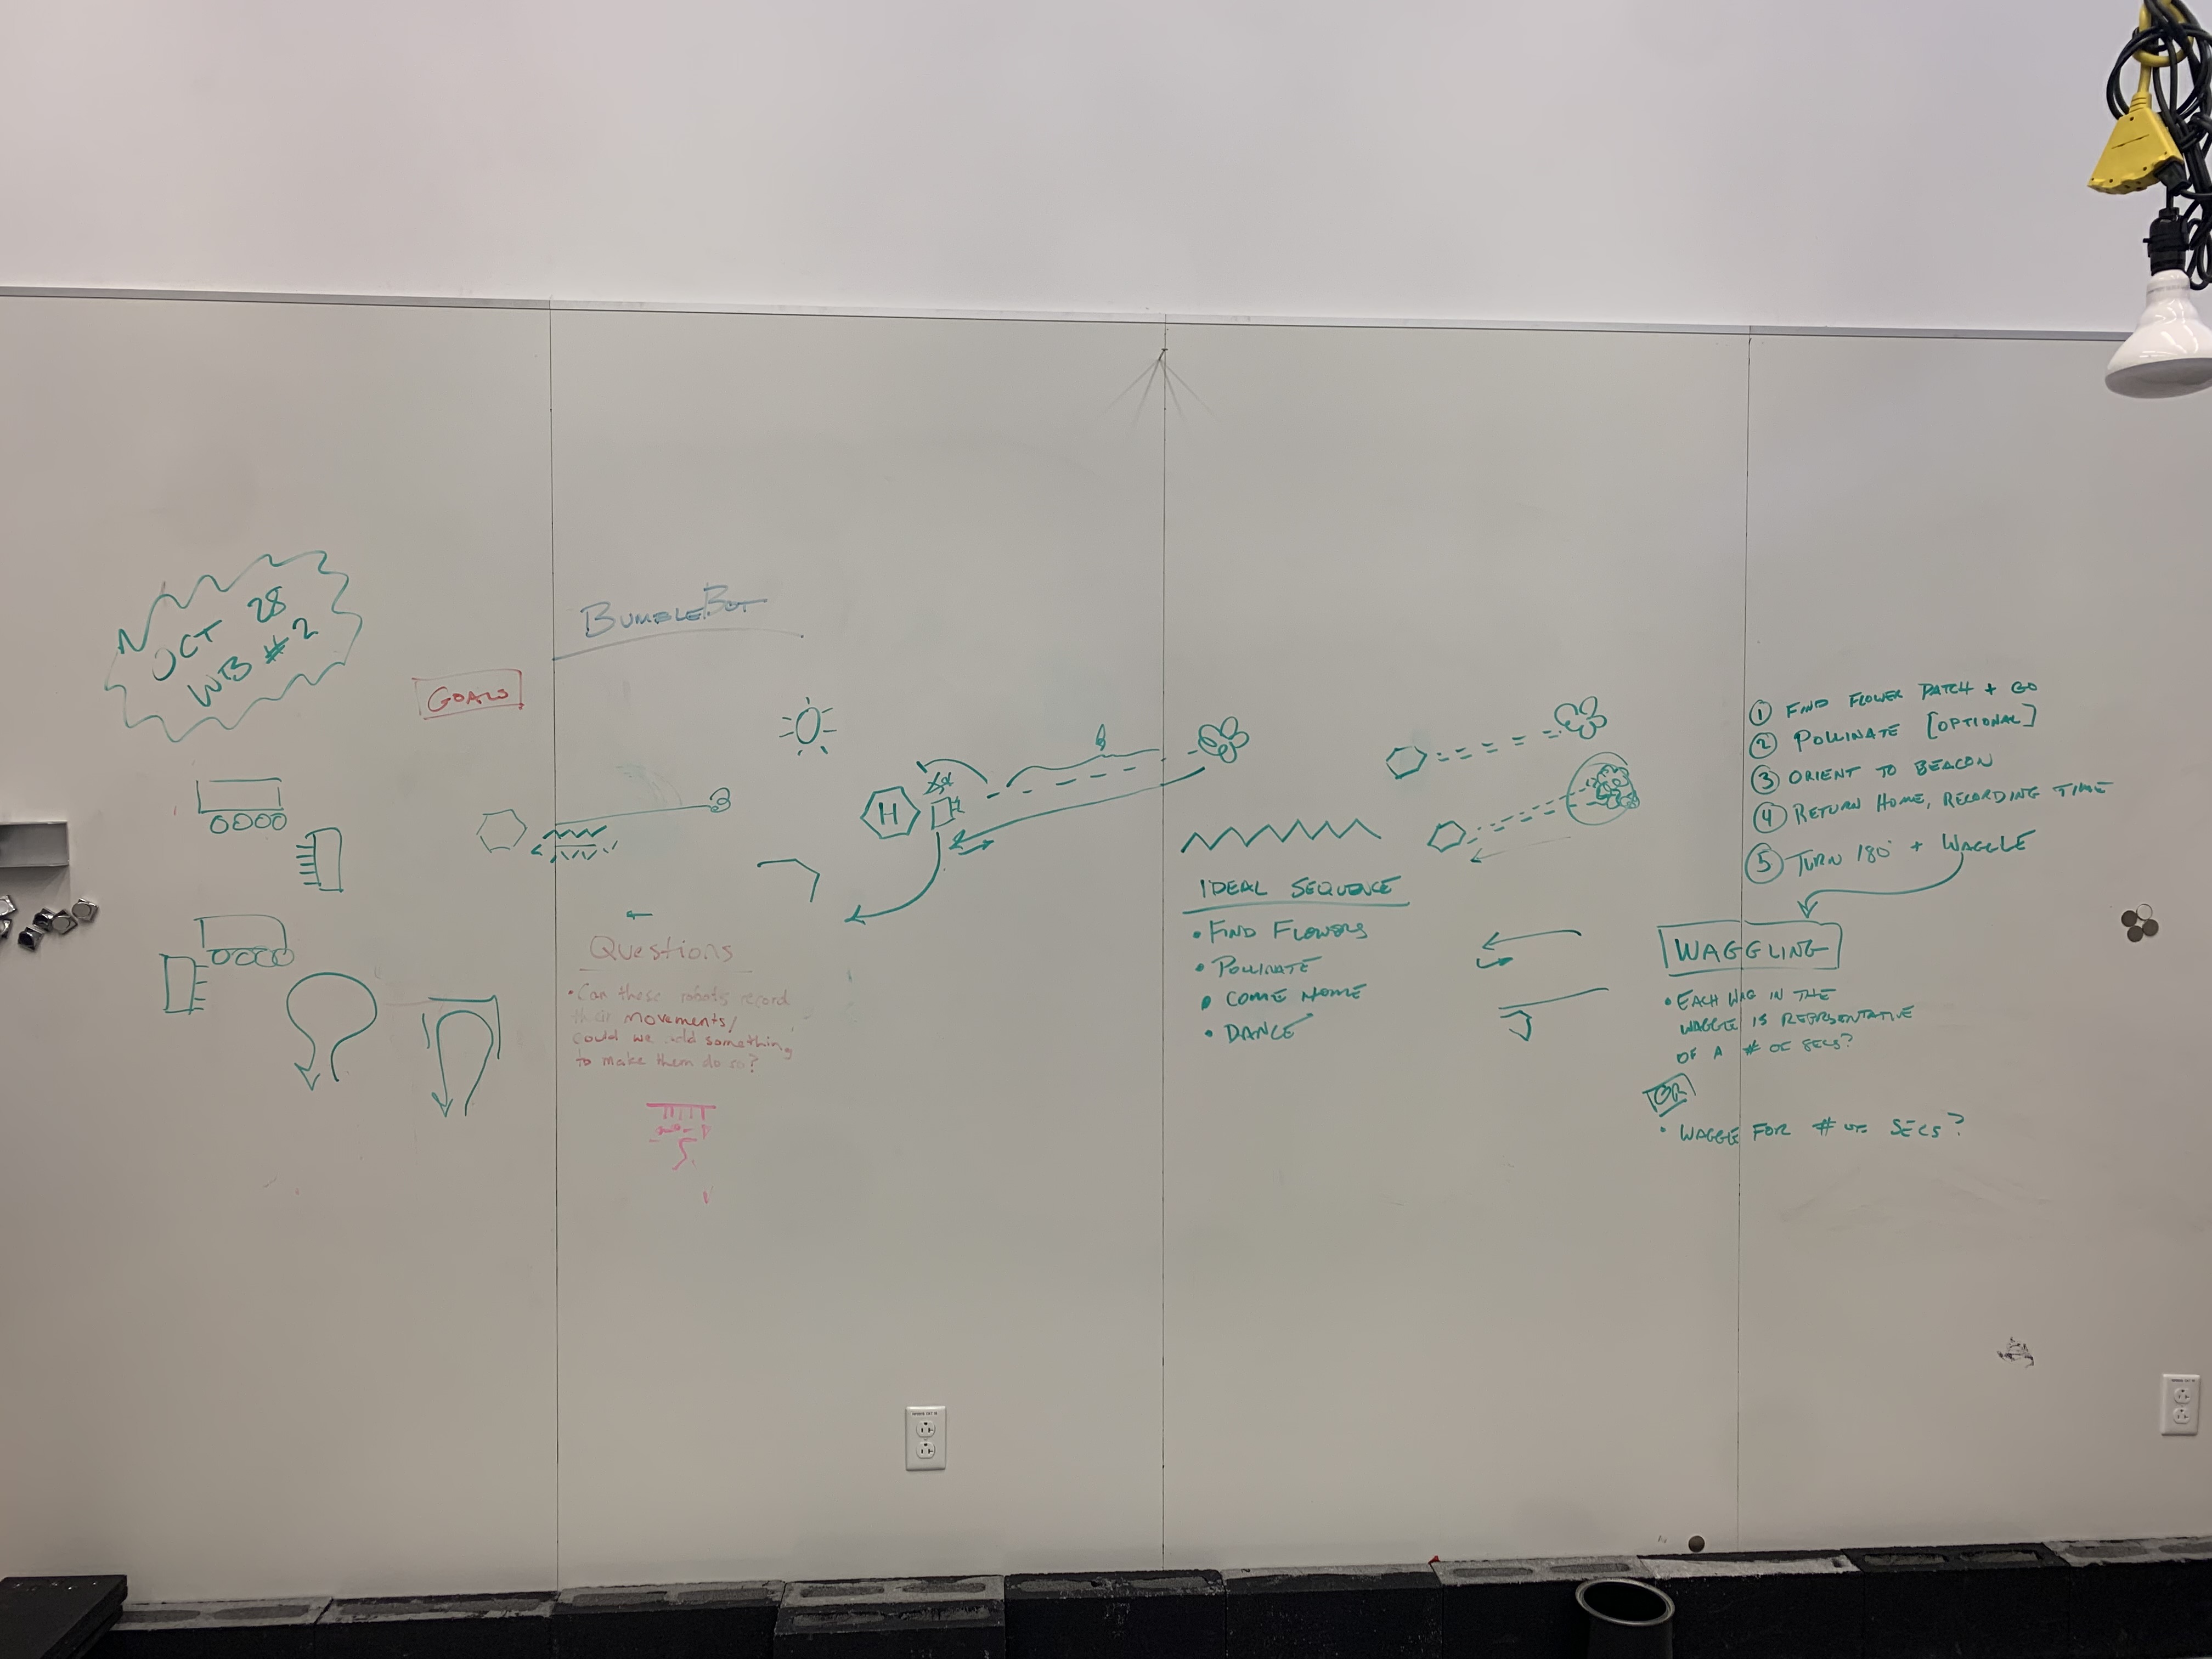 OCT 28
WB #2
BUMBLEBOT
GOALS
H
Questions
• Can these robots record
their movements/
could we add something
to make them do so?
IDEAL SEQUENCE
• FIND FLOWERS
• POLLINATE
• COME HOME
• DANCE
① FIND FLOWER PATCH + GO
② POLLINATE [OPTIONAL]
③ ORIENT TO BEACON
④ RETURN HOME, RECORDING TIME
⑤ TURN 180° + WAGGLE
WAGGLING
• EACH WAG IN THE
WAGGLE IS REPRSENTATIVE
OF A # OF SECS?
OR
• WAGGLE FOR # OF SECS?